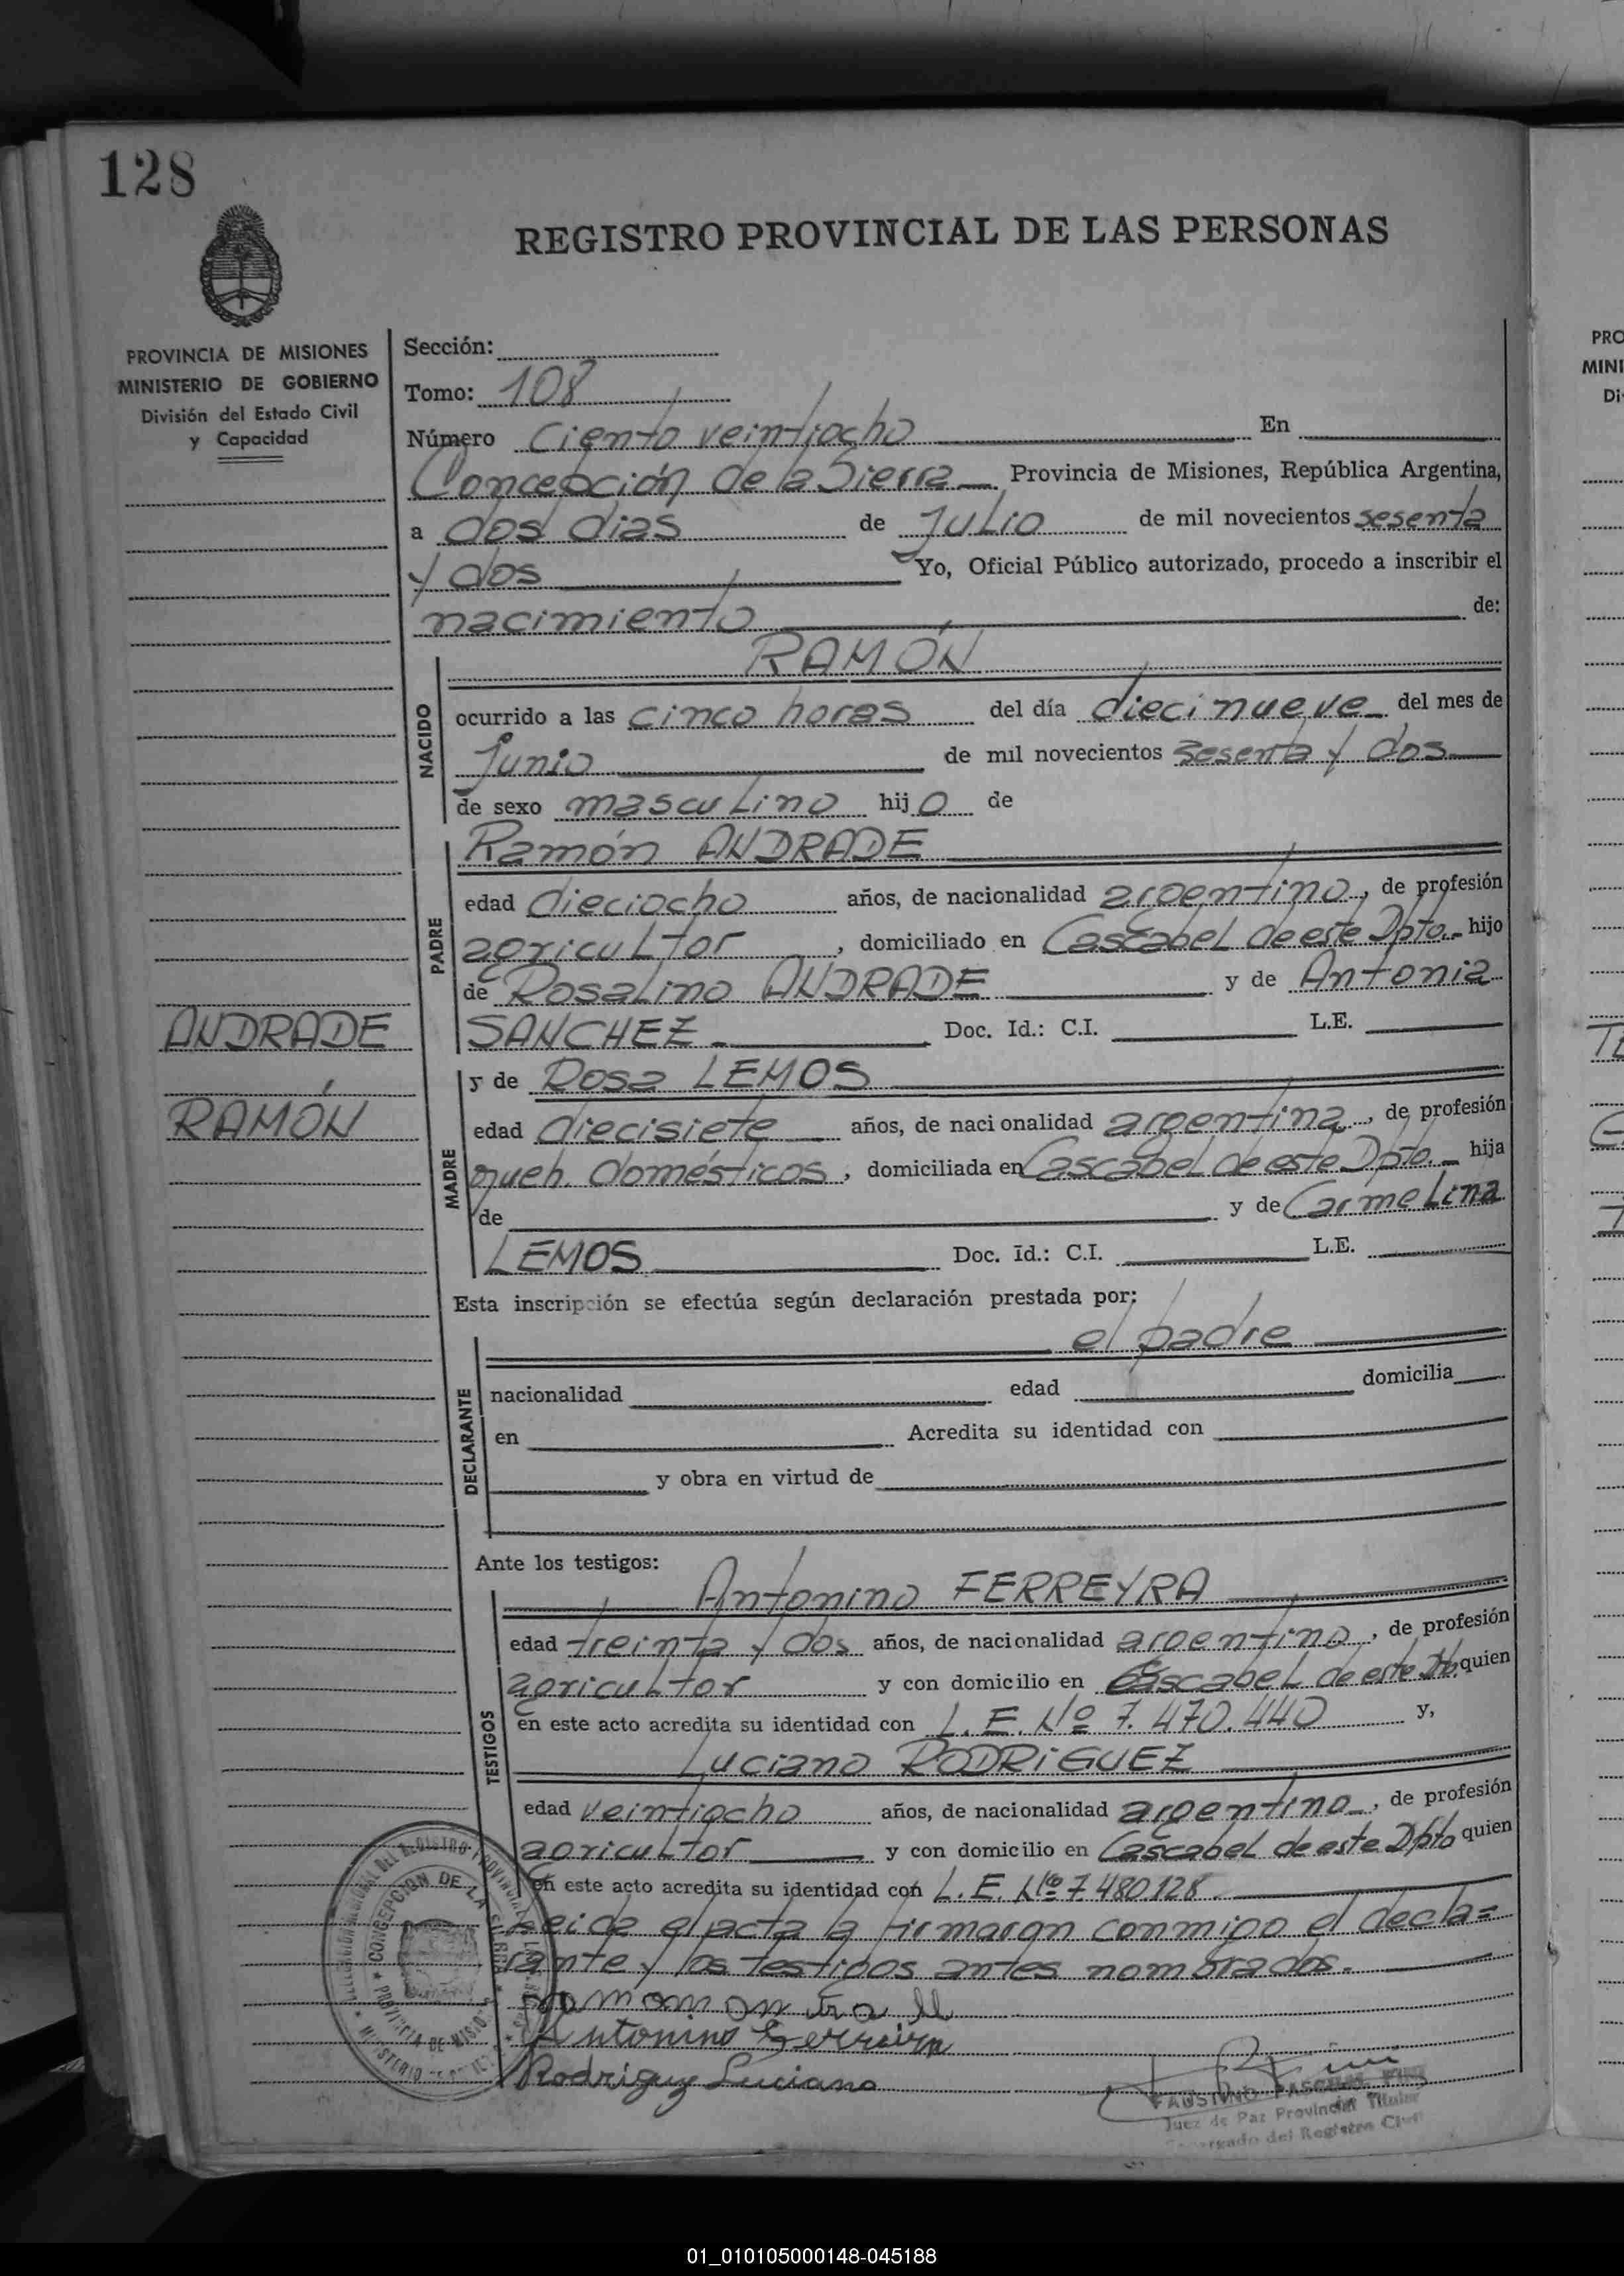 128
REGISTRO PROVINCIAL DE LAS PERSONAS
PROVINCIA DE MISIONES
MINISTERIO DE GOBIERNO
División del Estado Civil
y Capacidad
Sección:
Tomo: 108
Número Ciento veintiocho En
Concepción de la Sierra Provincia de Misiones, República Argentina,
a dos dias de Julio de mil novecientos sesenta
y dos Yo, Oficial Público autorizado, procedo a inscribir el
nacimiento de:
RAMÓN
NACIDO
ocurrido a las cinco horas del día diecinueve del mes de
Junio de mil novecientos sesenta y dos
de sexo masculino hijo de
PADRE
Ramón ANDRADE
edad dieciocho años, de nacionalidad argentino, de profesión
agricultor, domiciliado en Cascabel de este Dpto. hijo
de Rosalino ANDRADE y de Antonia
SANCHEZ Doc. Id.: C.I. L.E.
ANDRADE
RAMÓN
MADRE
y de Rosa LEMOS
edad diecisiete años, de nacionalidad argentina, de profesión
queh. domésticos, domiciliada en Cascabel de este Dpto. hija
de y de Carmelina
LEMOS Doc. Id.: C.I. L.E.
Esta inscripción se efectúa según declaración prestada por:
el padre
DECLARANTE
nacionalidad edad domicilia
en Acredita su identidad con
y obra en virtud de
Ante los testigos:
TESTIGOS
Antonino FERREYRA
edad treinta y dos años, de nacionalidad argentino, de profesión
agricultor y con domicilio en Cascabel de este quien
en este acto acredita su identidad con L.E. Nº 7.470.440 y,
Luciano RODRIGUEZ
edad veintiocho años, de nacionalidad argentino, de profesión
agricultor y con domicilio en Cascabel de este Dpto quien
en este acto acredita su identidad con L.E. Nº 7.480.128.
Leida el acta la firmaron conmigo el decla=
rante y los testigos antes nombrados.
Antonino Ferreira
Rodriguz Luciano
CONCEPCION DE LA SIERRA
PROVINCIA DE MISIONES
FAUSTINO PASCUAL
Juez de Paz Provincial Titular
Encargado del Registro Civil
PRO
MINI
01_010105000148-045188